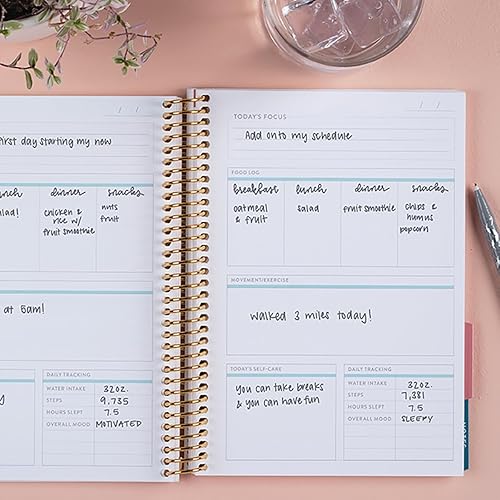 / /
first day starting my new
lunch dinner snacks
salad! chicken & nuts
rice w/ fruit
fruit smoothie
at 5am!
DAILY TRACKING
WATER INTAKE 32OZ.
STEPS 9,735
HOURS SLEPT 7.5
OVERALL MOOD MOTIVATED
/ /
TODAY'S FOCUS
Add onto my schedule
FOOD LOG
breakfast lunch dinner snacks
oatmeal salad fruit smoothie chips &
& fruit humus
popcorn
MOVEMENT/EXERCISE
walked 3 miles today!
TODAY'S SELF-CARE
you can take breaks
& you can have fun
DAILY TRACKING
WATER INTAKE 32OZ.
STEPS 7,381
HOURS SLEPT 7.5
OVERALL MOOD SLEEPY